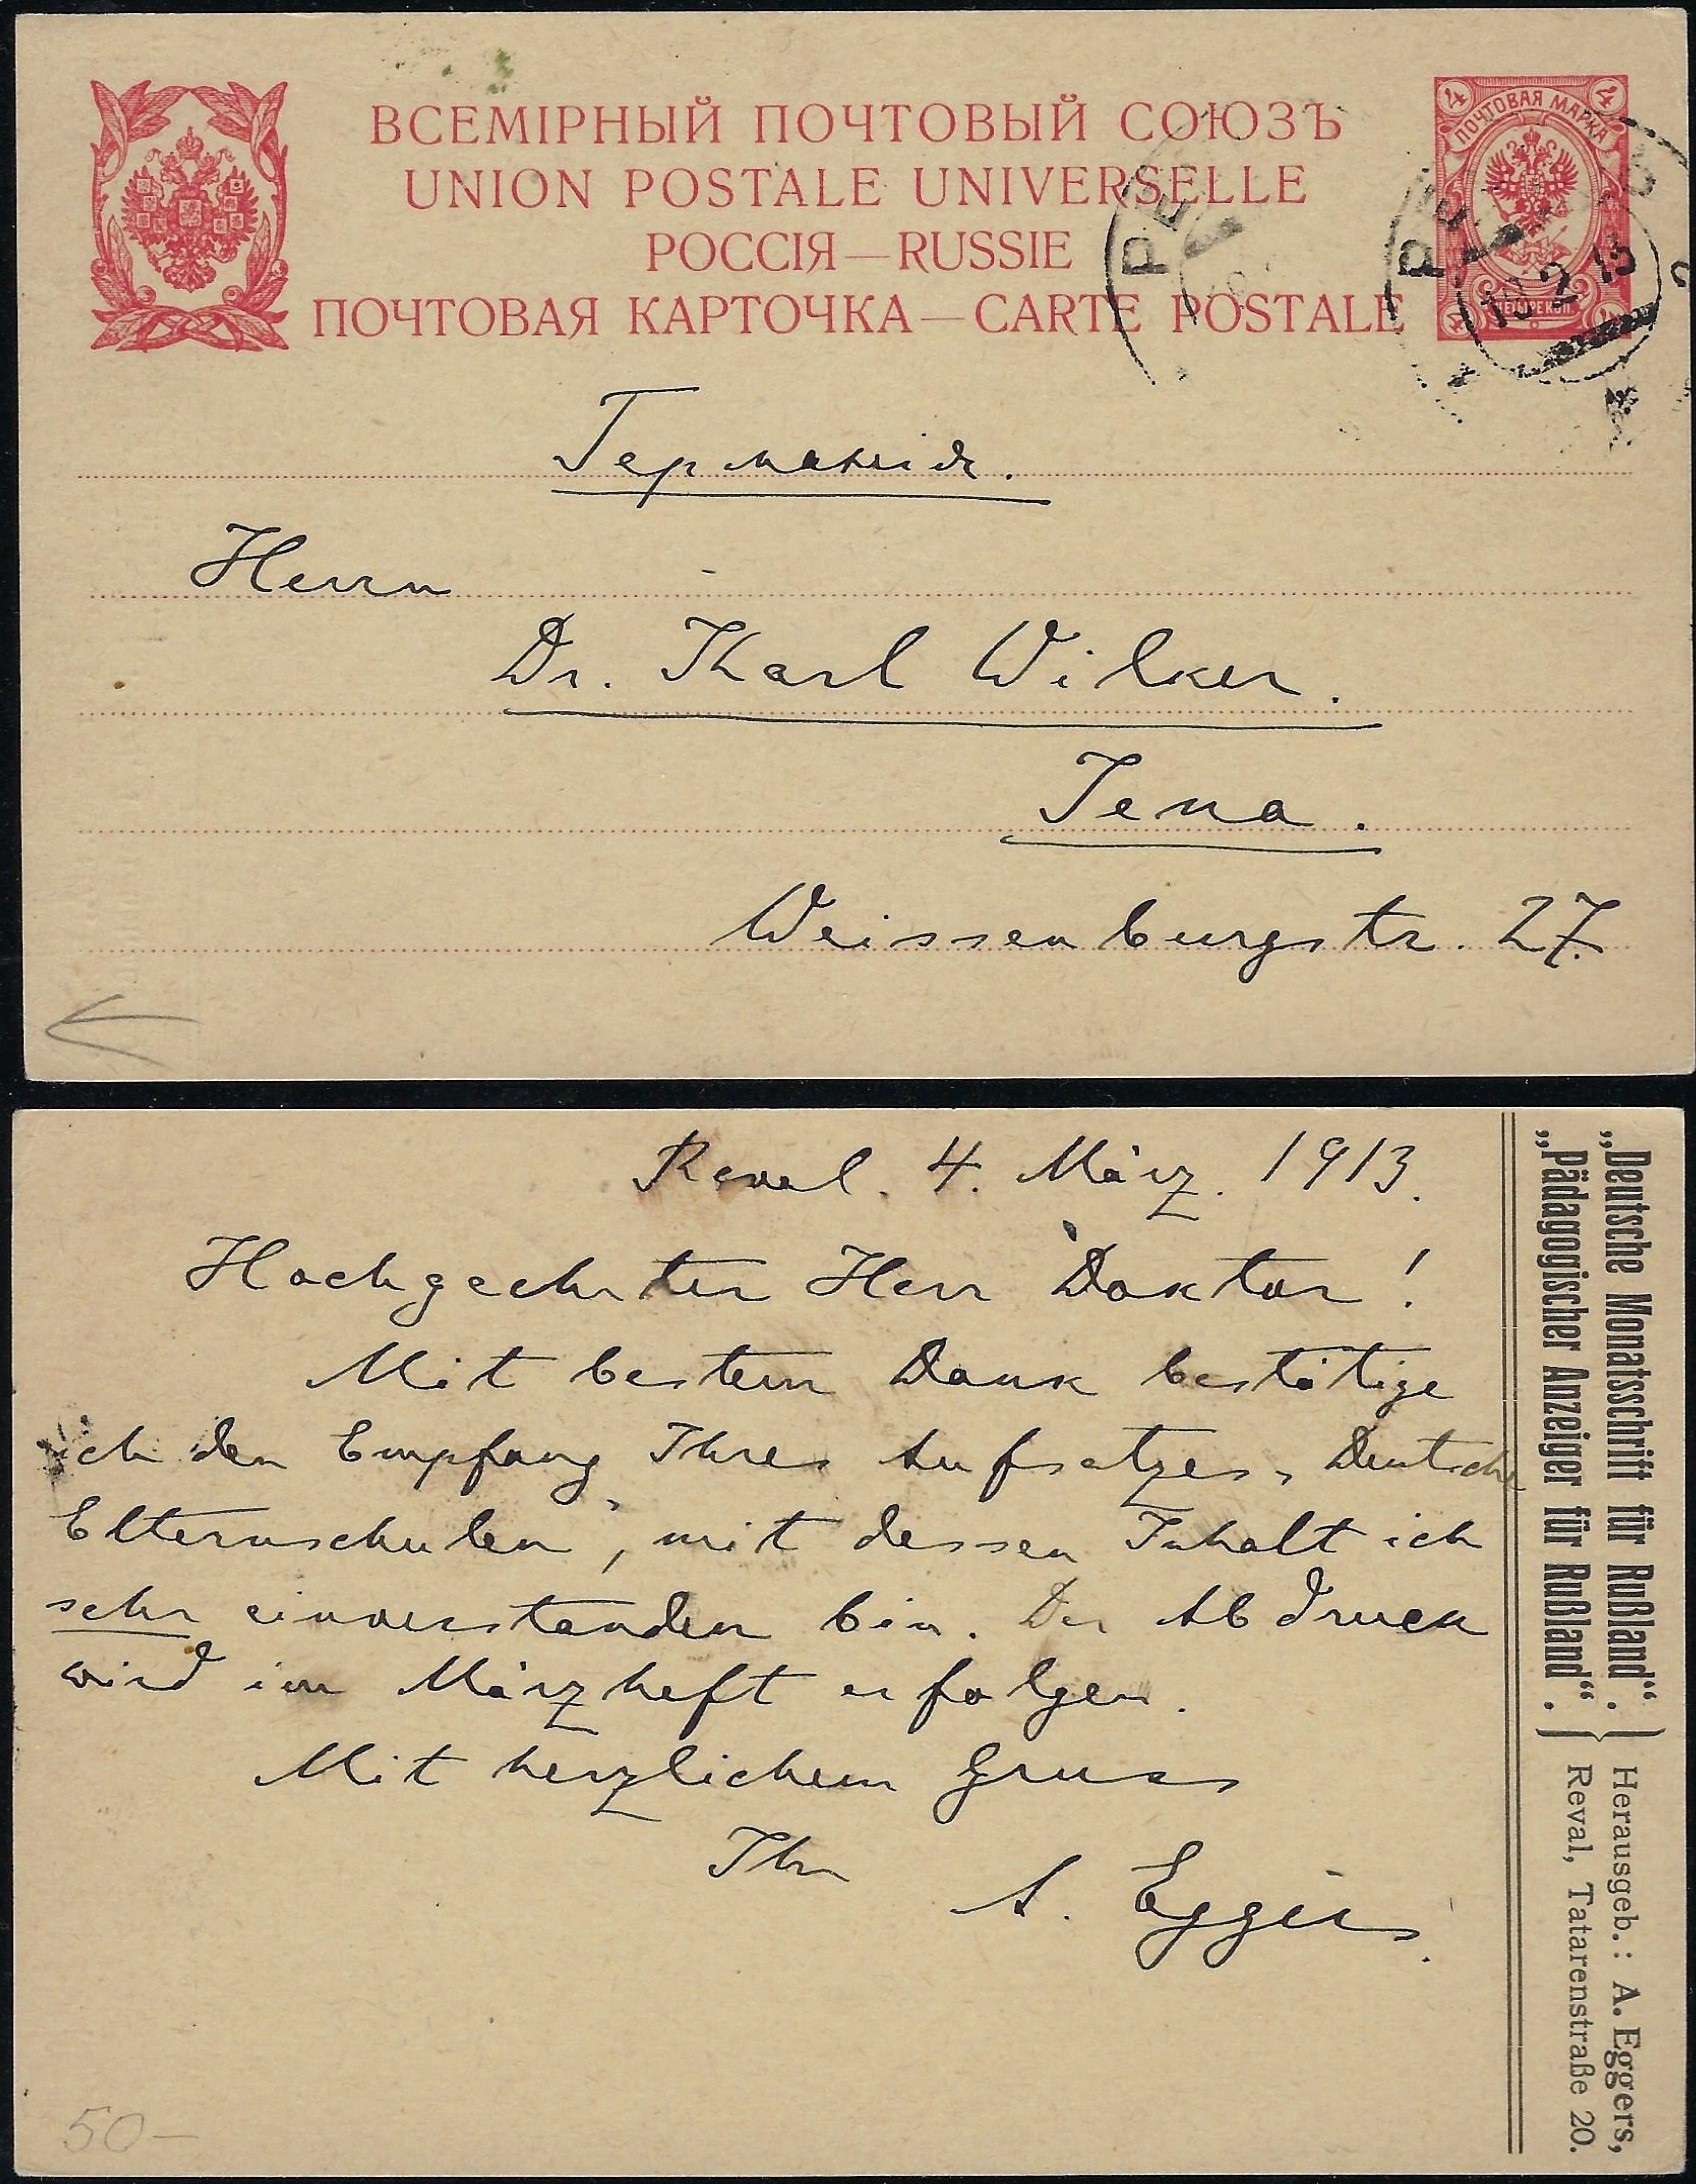 ВСЕМІРНЫЙ ПОЧТОВЫЙ СОЮЗЪ
UNION POSTALE UNIVERSELLE
РОССІЯ — RUSSIE
ПОЧТОВАЯ КАРТОЧКА — CARTE POSTALE
4 4
ПОЧТОВАЯ МАРКА
РЕ
РЕ
10 2 13
Германія.
Herrn
Dr. Karl Wilker.
Jena.
Weissenburgstr. 27.
Reval. 4. März. 1913.
Hochgeehrter Herr Doktor!
Mit bestem Dank bestätige
ich den Empfang Ihres Aufsatzes „Deutsche
Elternschulen", mit dessen Inhalt ich
sehr einverstanden bin. Der Abdruck
wird im Märzheft erfolgen.
Mit herzlichem Gruss
Ihr
A. Eggers.
50—
„Deutsche Monatsschrift für Rußland“.
„Pädagogischer Anzeiger für Rußland“.
Herausgeb.: A. Eggers,
Reval, Tatarenstraße 20.